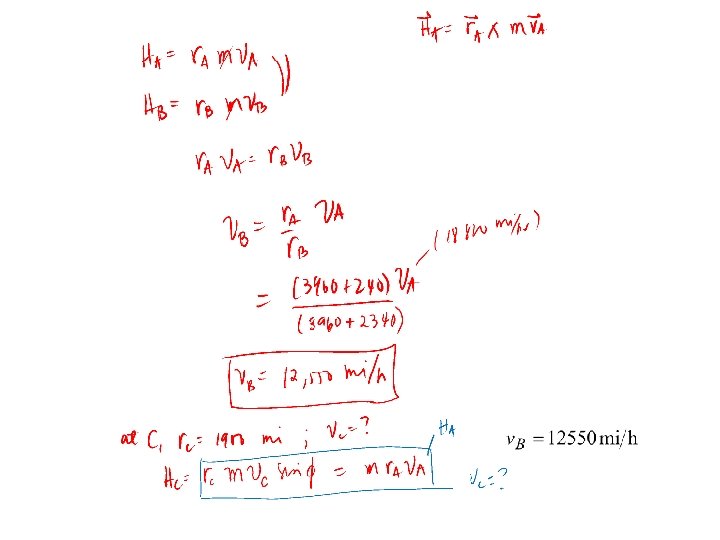 H⃗_A = r⃗_A × m v⃗_A
H_A = r_A m v_A
H_B = r_B m v_B
r_A v_A = r_B v_B
v_B = r_A/r_B v_A
= (3960+240)/(3960+2340) v_A (18 820 mi/hr)
v_B = 12,550 mi/h
at C, r_C = 1900 mi ; v_C = ? H_A
v_B = 12550 mi/h
H_C = r_C m v_C sin ϕ = m r_A v_A v_C = ?